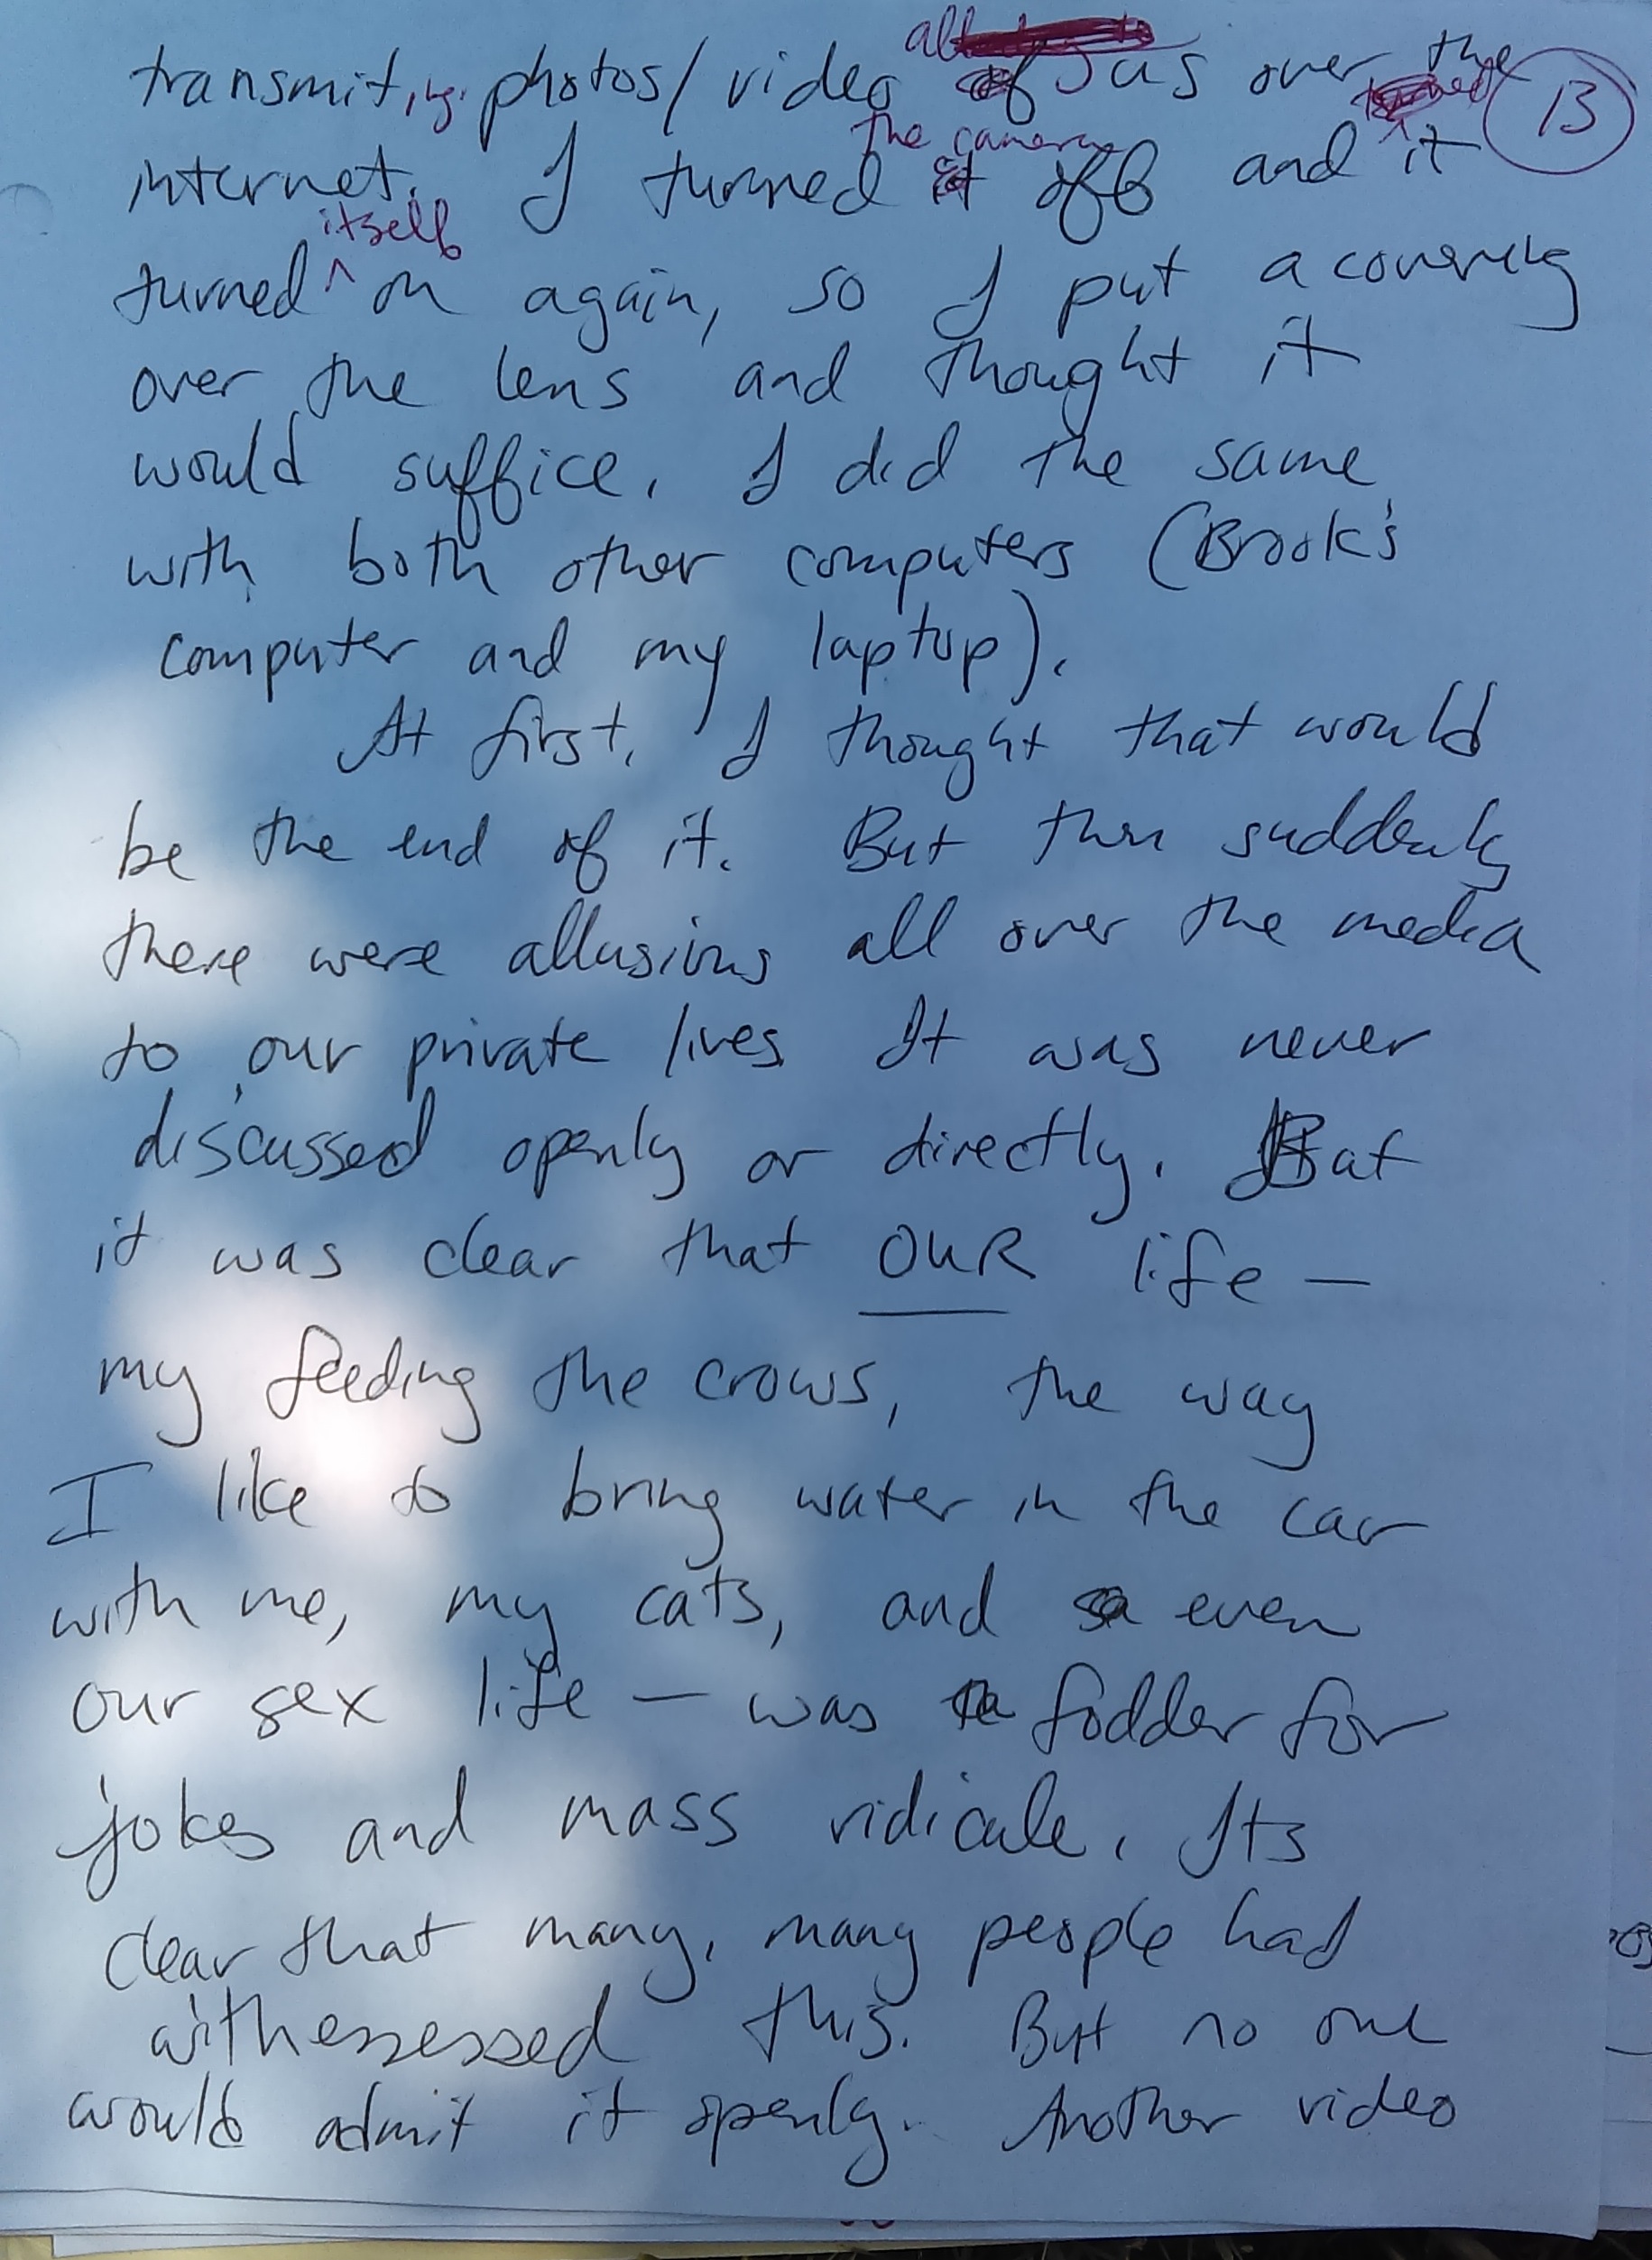 transmitting photos/video of us over the
internet. I turned the camera off and it
turned itself on again, so I put a covering
over the lens and thought it
would suffice. I did the same
with both other computers (Brook's
computer and my laptop).
At first, I thought that would
be the end of it. But then suddenly
there were allusions all over the media
to our private lives. It was never
discussed openly or directly. But
it was clear that OUR life —
my feeding the crows, the way
I like to bring water in the car
with me, my cats, and even
our sex life — was fodder for
jokes and mass ridicule. Its
clear that many, many people had
withessessed this. But no one
would admit it openly. Another video
13